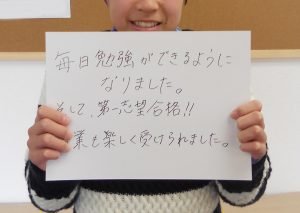 毎日勉強ができるように
なりました。
そして、第一志望合格!!
業も楽しく受けられました。